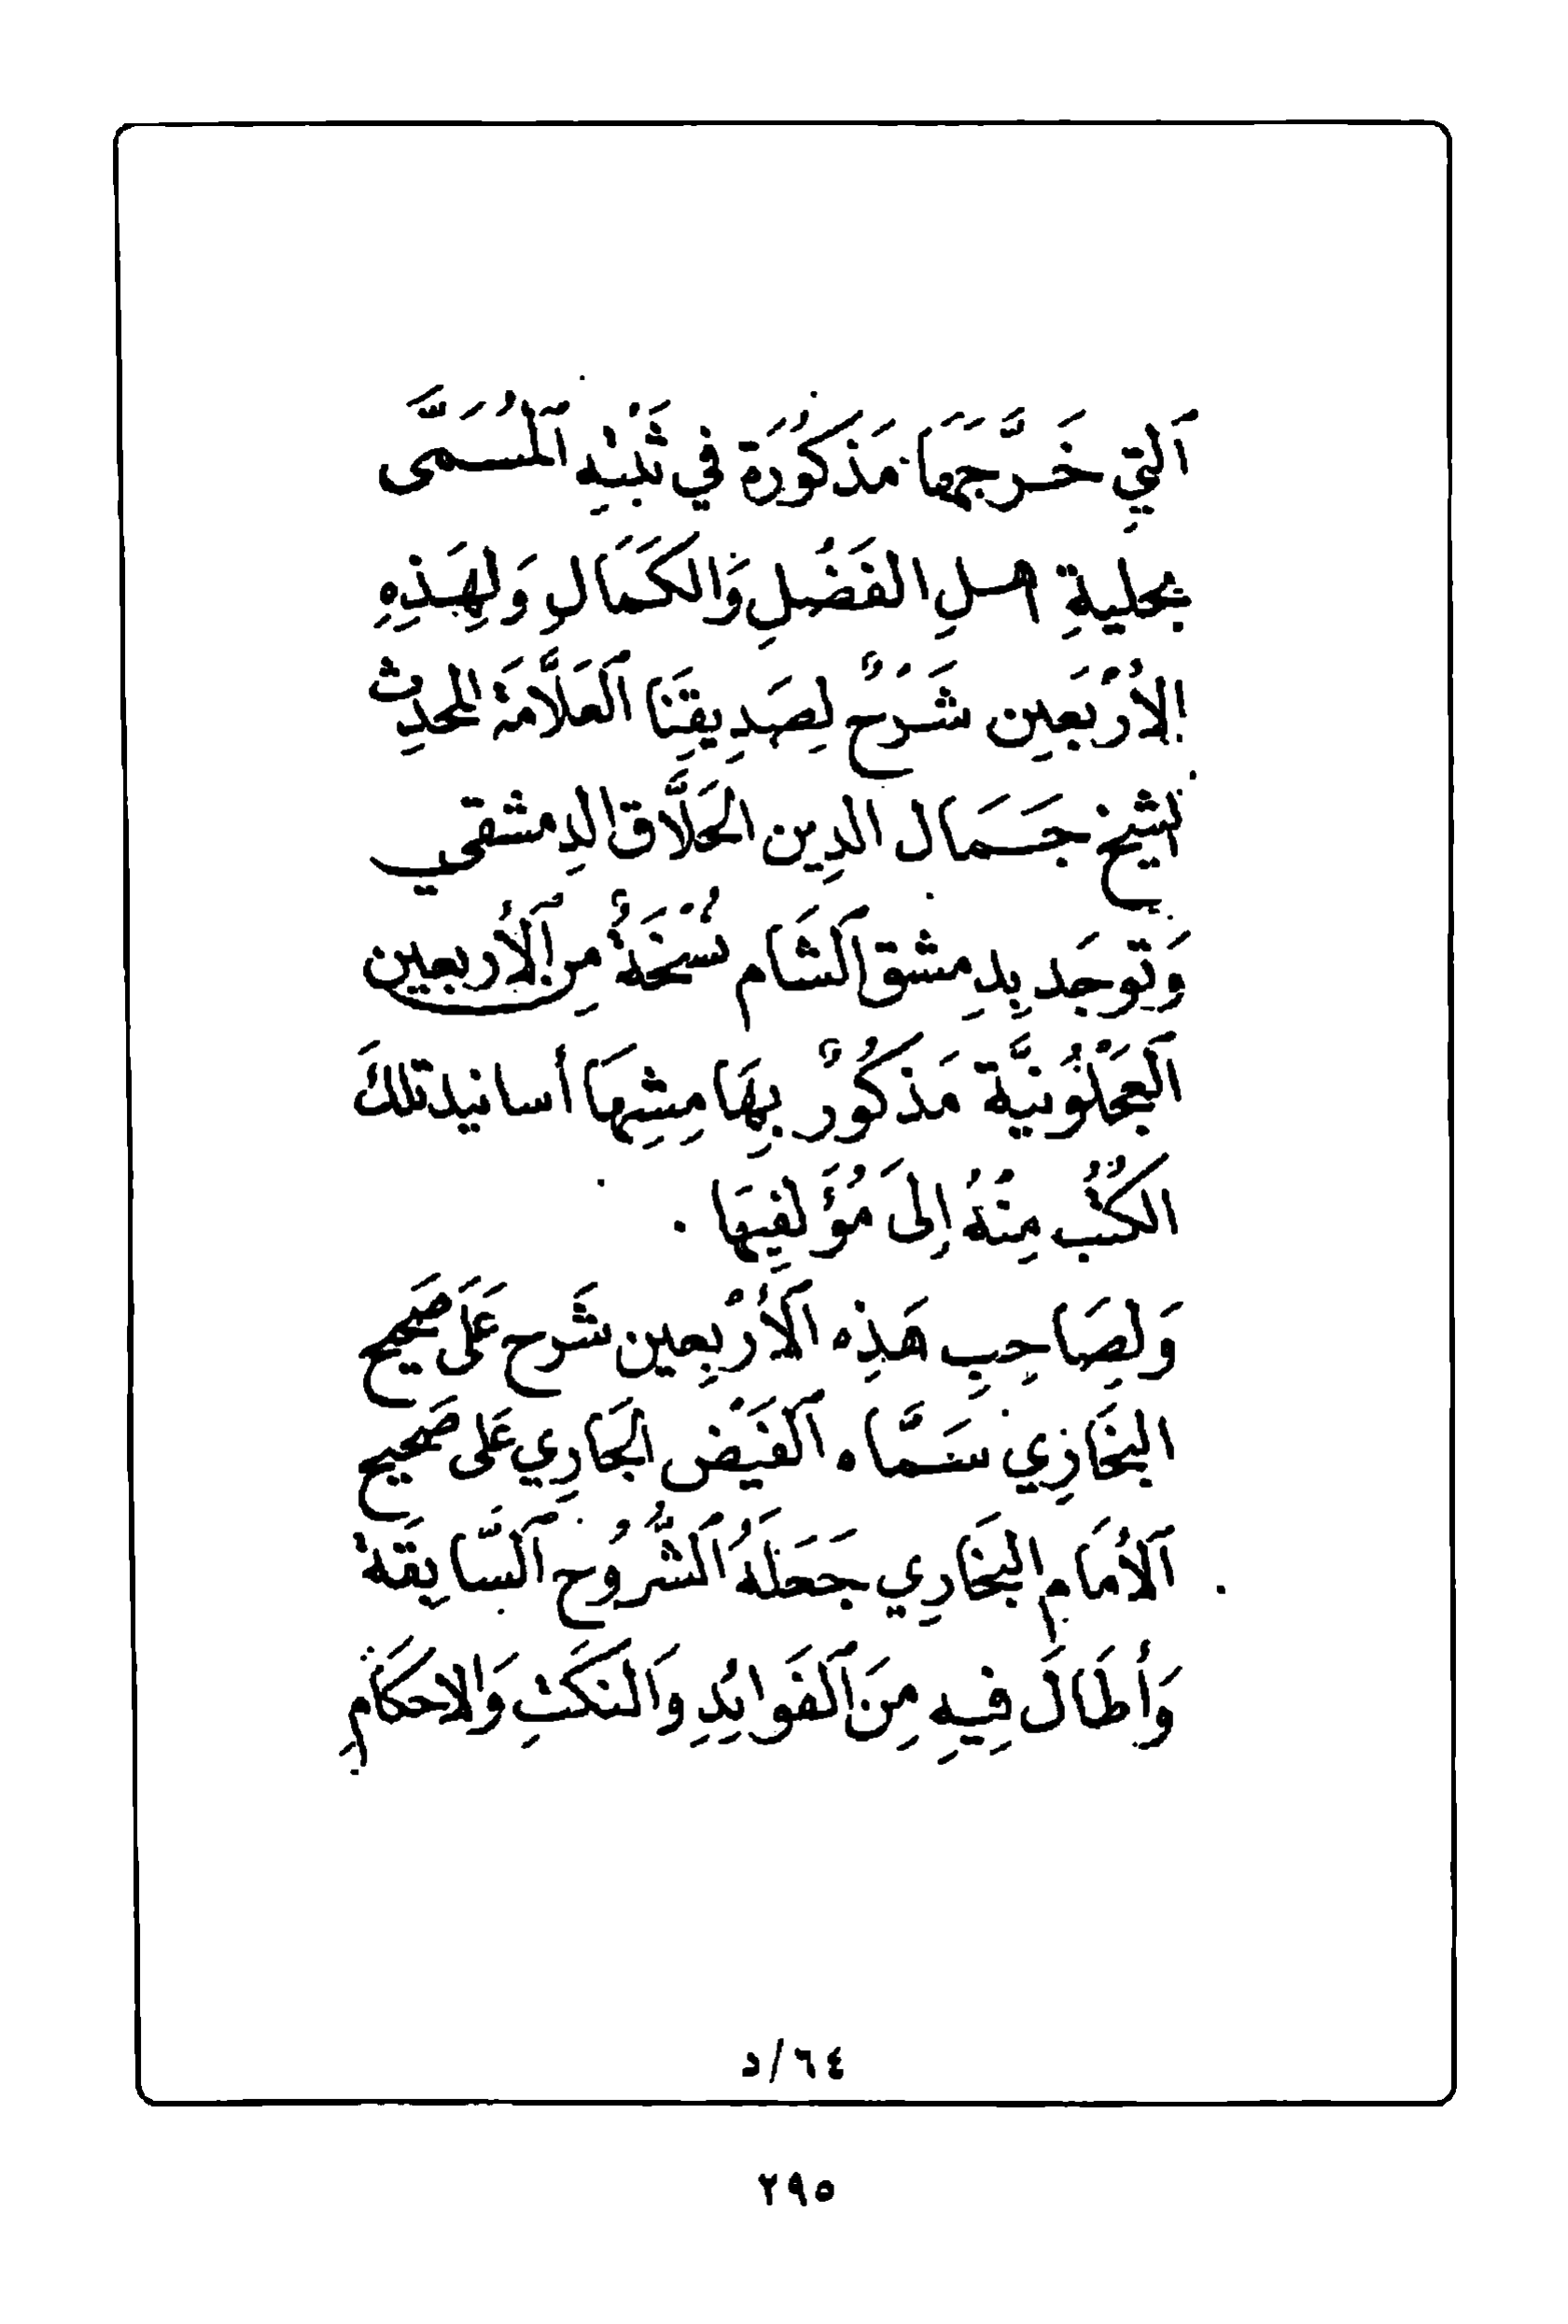 اَلتِي خَرَّجَهَا مَذكُورَة فِي ثَبْتِهِ اَلمُسَمَّى
بحليةِ اهلِ الفَضْلِ وَالكَمَالِ وَلِهَذِهِ
الأَرْبَعِين شَرْحٌ لِصَدِيقِنَا اَلعَلَّامَة المحدِث
الشيخ جَمَال الدِين الحَلَّاق الدِمشقي
وَتوجَد بِدِمشق اَلشَام نُسْخَةٌ مِن اَلأَربعين
اَلعَجْلُونيَّة مَذكُورٌ بِهَامِشِهَا أسانيد تلكَ
الكتُب مِنْهُ اِلَى مُؤَلفِيهَا .
وَلِصَاحِبِ هَذِه اَلأَرْبعِين شَرح عَلَى صَحِيح
البُخَارِي سَمَّاه اَلفَيْض الجَارِي عَلى صَحيح
اَلأمَام البُخَارِي جَعَلَهُ اَلشُّرُوح اَلسَّابِقَة
وَأطَالَ فِيهِ مِنَ اَلفَوائدِ وَالنكَتِ وَالاحكَامِ
٦٤/د
٢٩٥